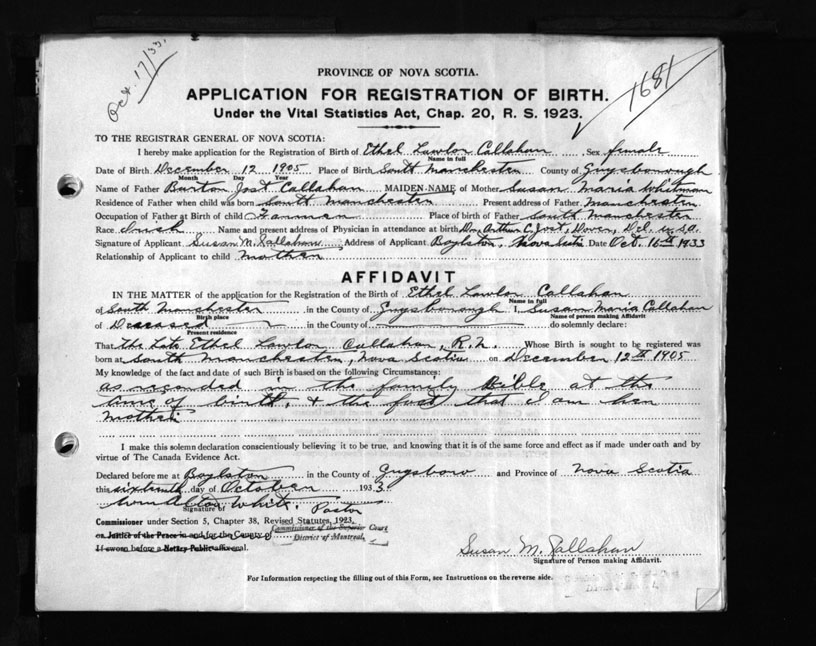 Oct 17/33.
1681
PROVINCE OF NOVA SCOTIA.
APPLICATION FOR REGISTRATION OF BIRTH.
Under the Vital Statistics Act, Chap. 20, R. S. 1923.
TO THE REGISTRAR GENERAL OF NOVA SCOTIA:
I hereby make application for the Registration of Birth of Ethel Lawlor Callahan Sex female
Name in full
Date of Birth December 12 1905 Place of Birth South Manchester County of Guysborough
Month Day Year
Name of Father Burton Jost Callaham MAIDEN-NAME of Mother Susan Maria Whitman
Residence of Father when child was born South Manchester Present address of Father Manchester
Occupation of Father at Birth of child Farmer Place of birth of Father South Manchester
Race Irish Name and present address of Physician in attendance at birth Dr. Arthur C. Jost, Dover, Del. U.S.A.
Signature of Applicant Susan M. Callahan Address of Applicant Boylston, Nova Scotia Date Oct. 16th 1933
Relationship of Applicant to child Mother
AFFIDAVIT
IN THE MATTER of the application for the Registration of the Birth of Ethel Lawlor Callahan
Name in full
of South Manchester in the County of Guysborough I, Susan Maria Callahan
Birth place Name of person making Affidavit
of Deceased in the County of do solemnly declare:
Present residence
That the late Ethel Lawlor Callahan, R.N. Whose Birth is sought to be registered was
born at South Manchester, Nova Scotia on December 12th 1905
My knowledge of the fact and date of such Birth is based on the following Circumstances:
as recorded in the family Bible at the
time of birth, & the fact that I am her
mother
I make this solemn declaration conscientiously believing it to be true, and knowing that it is of the same force and effect as if made under oath and by
virtue of The Canada Evidence Act.
Declared before me at Boylston in the County of Guysboro and Province of Nova Scotia
this sixteenth day of October 1933
White, Pastor
Signature of
Commissioner under Section 5, Chapter 38, Revised Statutes, 1923,
or Justice of the Peace in and for the County of Commissioner of the Superior Court
District of Montreal,
If sworn before a Notary Public affix seal.
Susan M. Callahan
Signature of Person making Affidavit.
For Information respecting the filling out of this Form, see Instructions on the reverse side.